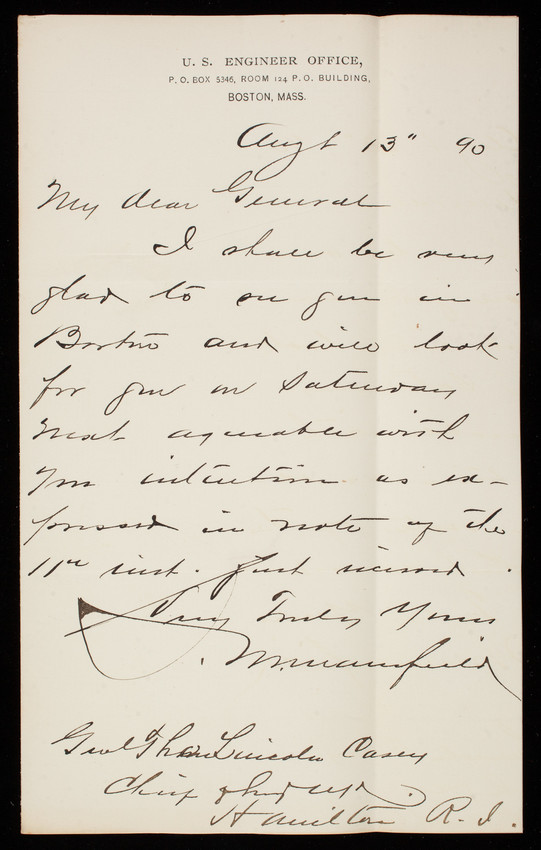 U. S. ENGINEER OFFICE,
P. O. BOX 5346, ROOM 124 P. O. BUILDING,
BOSTON, MASS.
Augt 13" 90
My dear General
I shall be very
glad to see you in
Boston and will look
for you on Saturday
next agreeable with
your intention as ex-
pressed in note of the
11th inst. just received.
Very Truly Yours
S. M. Mansfield
Genl Thos Lincoln Casey
Chief of Engrs
Hamilton R. I.